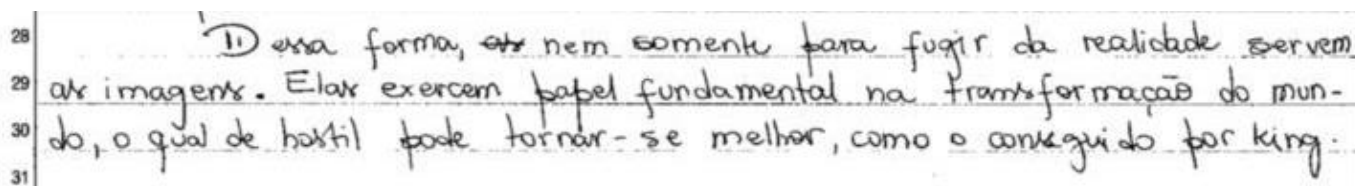 28 Dessa forma, as nem somente para fugir da realidade servem
29 as imagens. Elas exercem papel fundamental na transformação do mun-
30 do, o qual de hostil pode tornar-se melhor, como o conseguido por king.
31